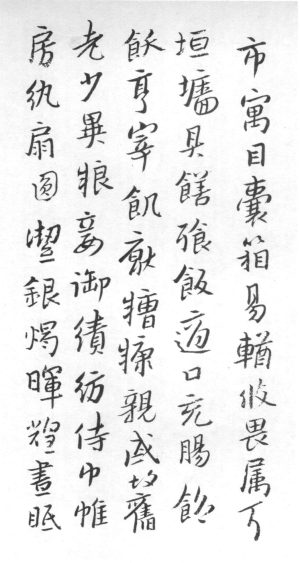 市寓目囊箱易輶攸畏属耳
垣墻具膳飡飯適口充腸飽
飫亨宰飢猒糟糠親戚故舊
老少異粮妾御績紡侍巾帷
房紈扇圓潔銀燭暉煌晝眠